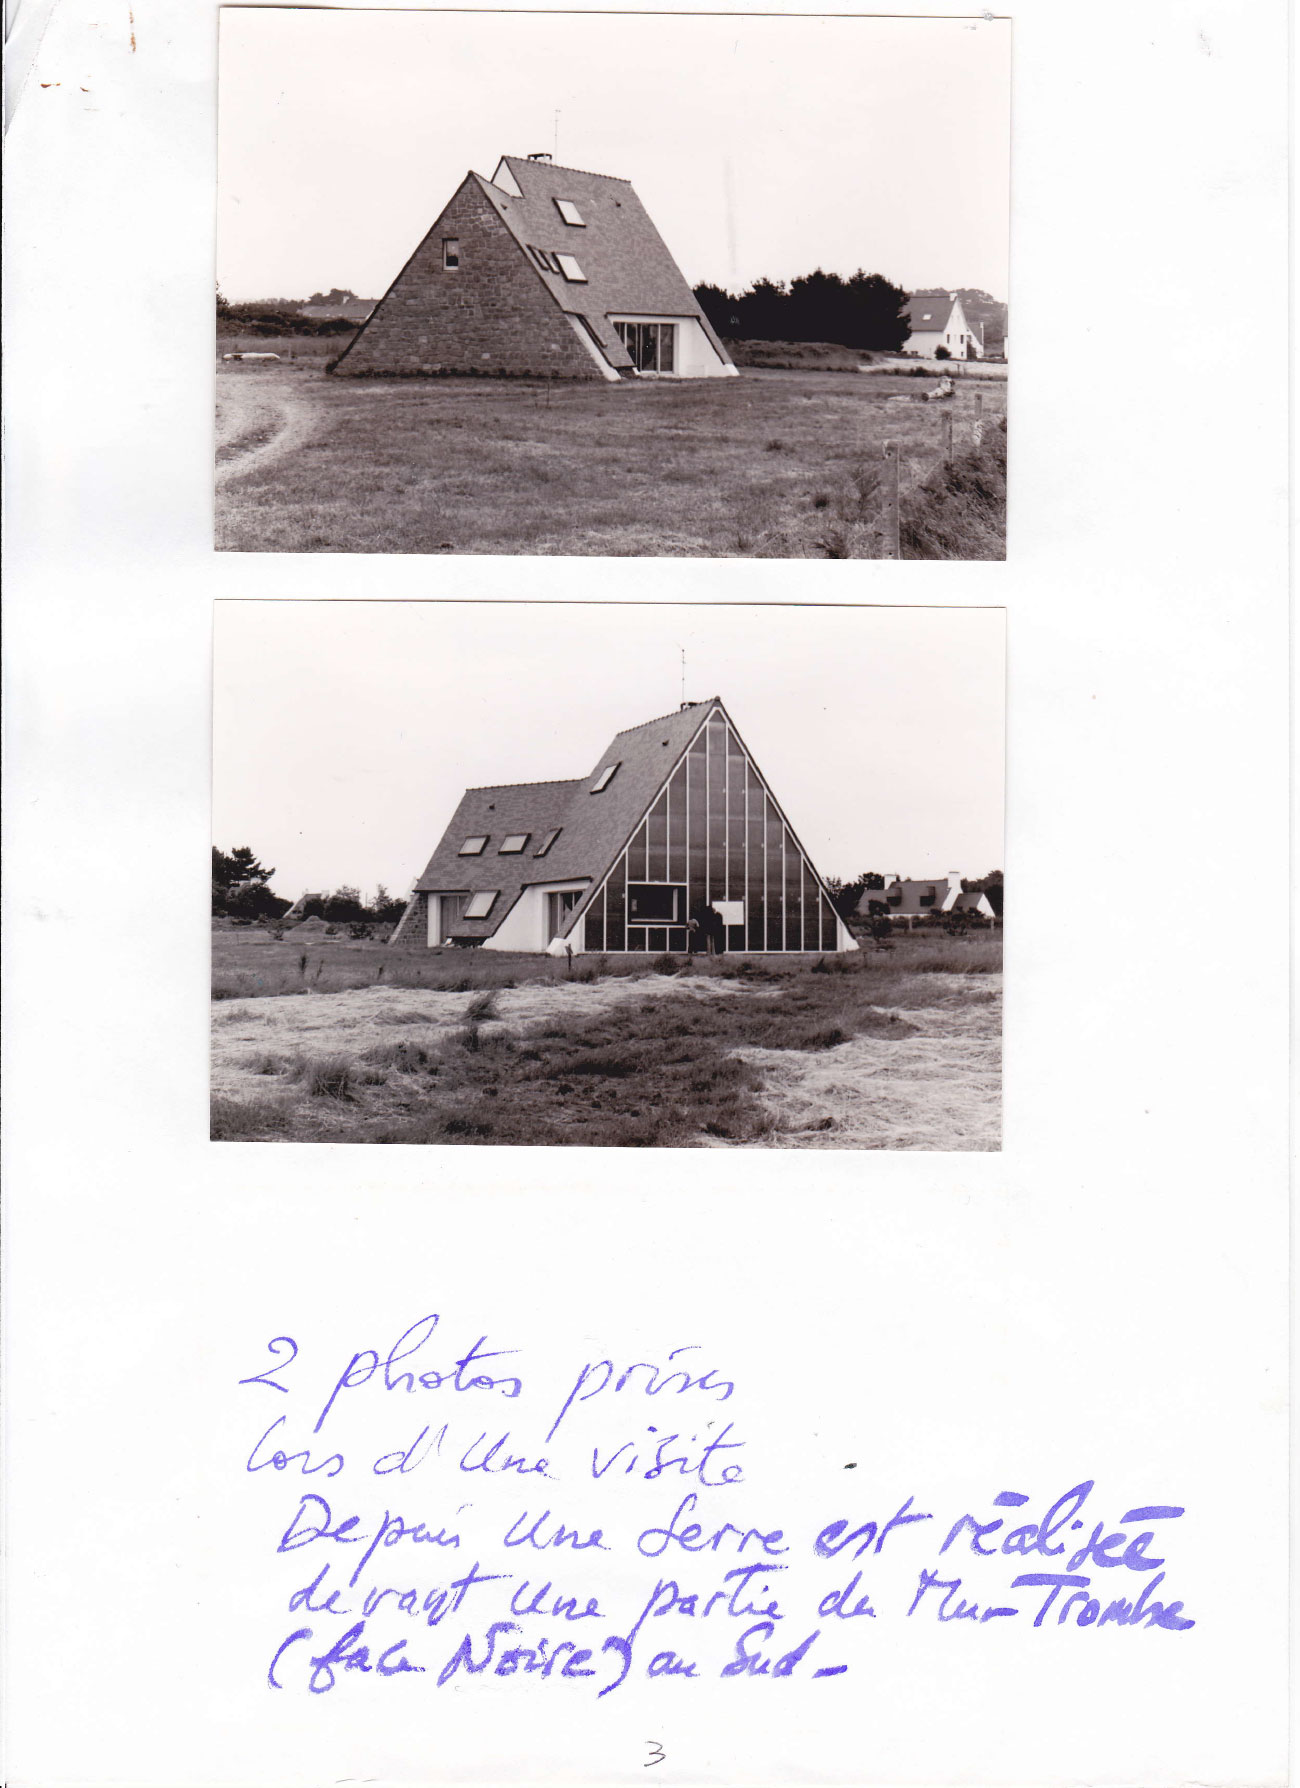 2 photos prises
lors d'une visite
Depuis une serre est réalisée
devant une partie du Mur-Trombe
(face Noire) au Sud-
3